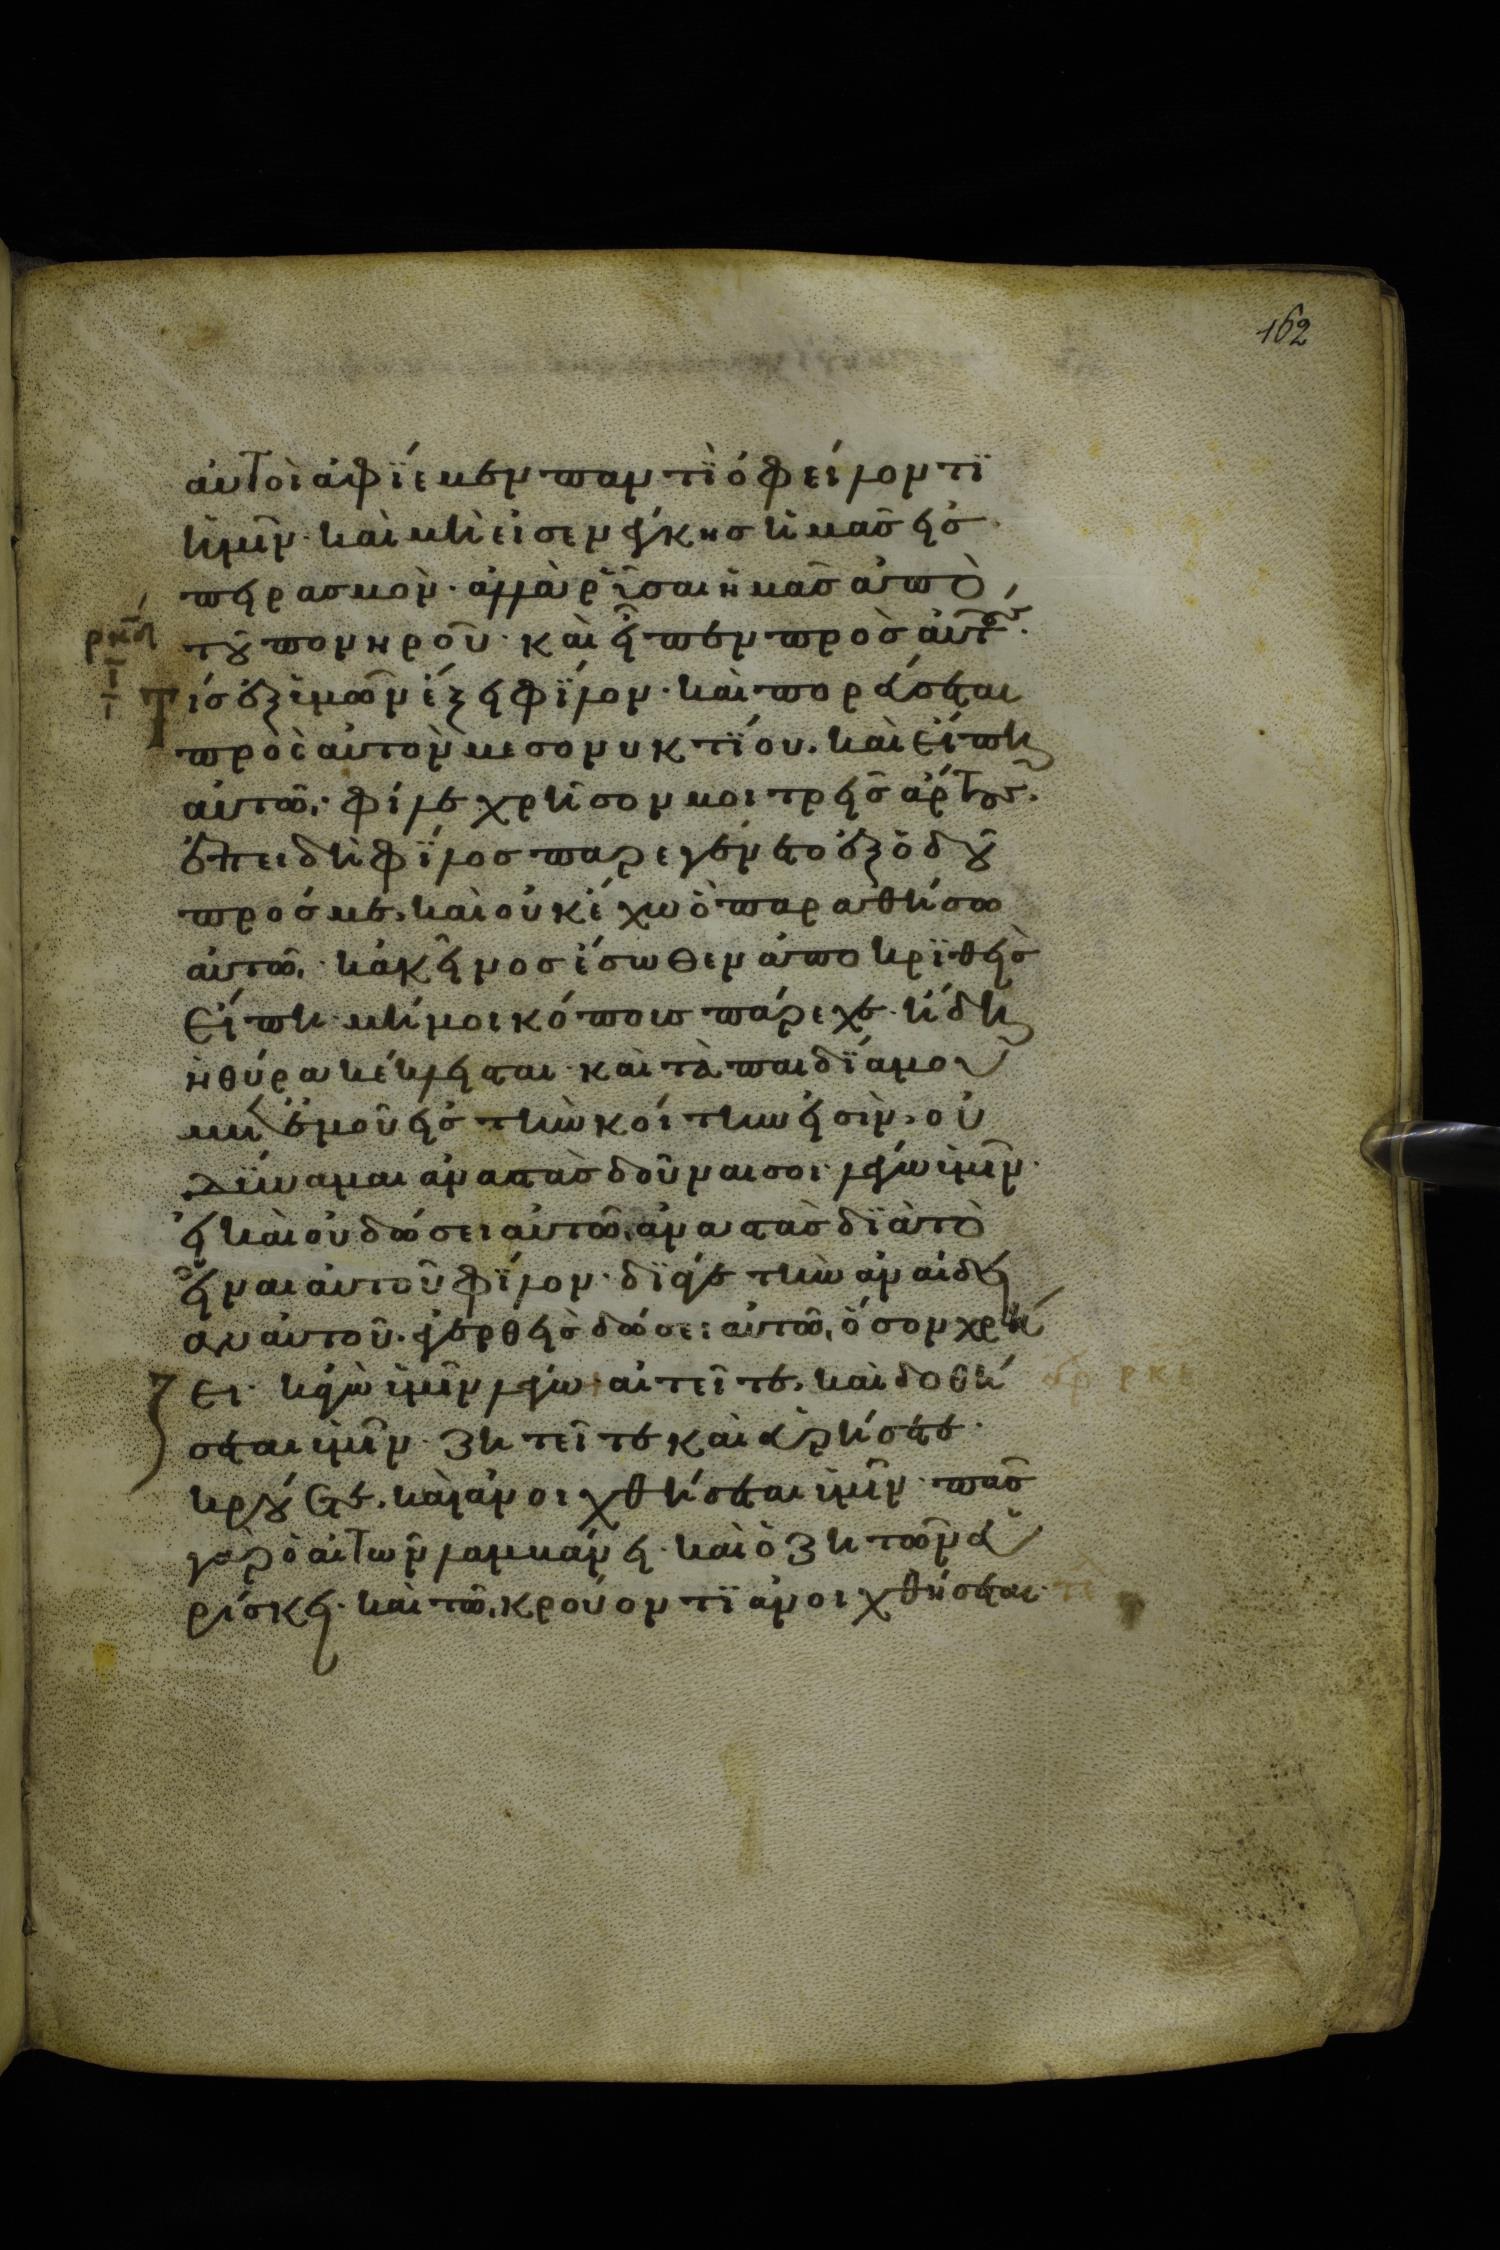 162
αὐτοὶ ἀφϊέμεν παντῒ ὀφείλοντϊ
ἡμῖν· καὶ μὴ εἰσενέγκησ ἡμᾶσ εἰσ
πειρασμὸν· ἀλλὰ ρῦσαι ἡμᾶσ ἀπὸ
τοῦ πονηροῦ· καὶ εἶπεν πρὸσ αὐτούσ·
ρκδ
Τίσ ἐξ ὑμῶν ἕξει φΐλον· καὶ πορεύσεται
πρὸσ αὐτὸν μεσονυκτΐου· καὶ εἴπη
αὐτῶ· φίλε χρῆσον μοι τρεῖσ ἄρτουσ·
ἐπειδὴ φΐλοσ παρεγένετο ἐξ ὁδοῦ
πρόσ με· καὶ οὐκ ἔχω ὃ παραθήσω
αὐτῶ· κἀκεῖνοσ ἔσωθεν ἀποκρϊθεὶσ
εἴπη· μή μοι κόπουσ πάρεχε· ἤδη
ἡ θύρα κέκλεισται· καὶ τὰ παιδΐα μου
μετ ἐμοῦ εἰσ τὴν κοίτην εἰσὶν· οὐ
δΰναμαι ἀναστὰσ δοῦναι σοι· λέγω ὑμῖν·
εἰ καὶ οὐ δώσει αὐτῶ ἀναστὰσ δϊὰ τὸ
εἶναι αὐτοῦ φΐλον· δϊά γε τὴν ἀναίδει
αν αὐτοῦ· ἐγερθεὶσ δώσει αὐτῶ ὅσον χρή
ζει· κἀγὼ ὑμῖν λέγω αἰτεῖτε· καὶ δοθή
ρκε
σεται ὑμῖν· ζητεῖτε καὶ εὑρήσετε·
κρούετε· καὶ ἀνοιχθήσεται ὑμῖν· πᾶσ
γὰρ ὁ αἰτῶν λαμβάνει· καὶ ὁ ζητῶν εὑ
ρίσκει· καὶ τῶ κρούοντϊ ἀνοιχθήσεται·